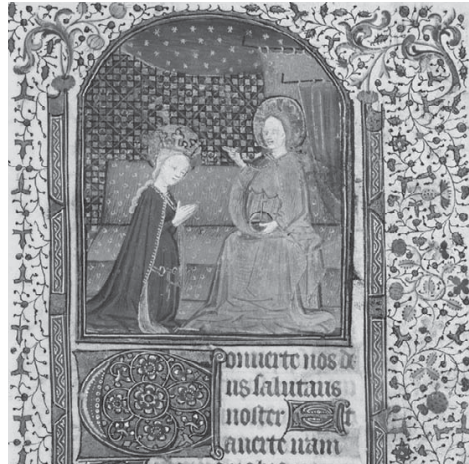 Conuerte nos de
us salutaris
noster Et
auerte iram